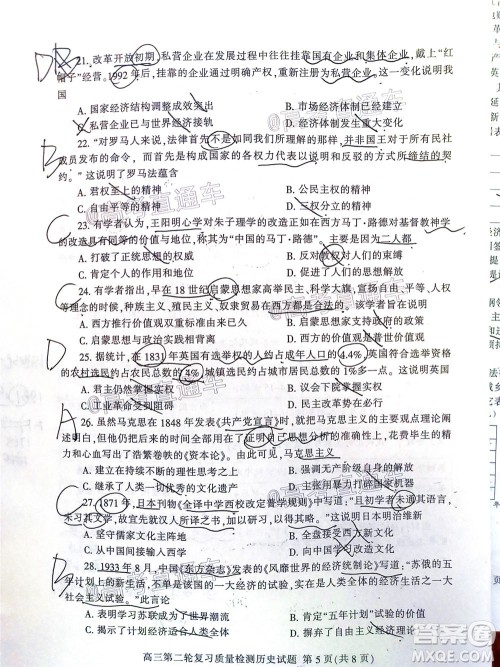 21. 改革开放初期，私营企业在发展过程中往往挂靠国有企业和集体企业，戴上“红
帽子”经营。1992年后，挂靠的私营企业通过明确产权，重新注册为私营企业。这一变化说明我
国
A. 国家经济结构调整成效突出 B. 市场经济体制已经建立
C. 私营企业已与世界经济接轨 D. 经济体制发生重大变化
22. “对罗马人来说，法律首先不是如同我们所理解的那样，并非国王对于所有市民社
成员发布的命令，而首先是构成国家的各权力代表以说明和反驳的方式所缔结的契
约。”这说明了罗马法蕴含
A. 君权至上的精神 B. 公民主权的精神
C. 自然平等的精神 D. 三权分立的精神
23. 有学者指出，王阳明心学对朱子理学的改造正如西方马丁·路德对基督教神学
的改造具有同等的价值与地位，称其为“中国的马丁·路德”。主要是因为二人都
A. 打破了正统思想的权威 B. 反对教权对人们的束缚
C. 肯定个人的作用和价值 D. 促进了思想的自由解放
24. 有学者指出，早在18世纪启蒙思想家高举民主、科学大旗，宣扬自由、平等、人权
等理念的时候，种族主义、殖民主义、奴隶贸易在西方都是合法的。该学者旨在说明
A. 西方推行价值观双重标准由来已久 B. 启蒙思想家支持政府的政策
C. 启蒙思想与政治实践相背离 D. 西方主导世界价值观
25. 据统计，在1831年英国有选举权的人约占成年人口的4.4%，英国符合选举资格
的农村选民约占农民总数的4%，城镇选民约占城市居民总数的1%多一点。这说明英国
A. 君主仍然掌握实权 B. 议会下院掌握实权
C. 工业革命受到阻碍 D. 可能面临社会危机
26. 虽然马克思在1848年发表了《共产党宣言》，将马克思主义的主要观点理论阐
述明白，但他在后来的时间里全部用在了证明自己思想分析的准确性上，花费大量的精
力和心血写出了浩繁卷帙的《资本论》。由此可见，马克思主义
A. 建立在持续不断的理性思考之上 B. 强调无产阶级自身的解放
C. 继承了人类一切优秀的文化遗产 D. 主张用暴力打碎国家机器
27. 1871年，日本刊物《全译中学西校改定普学规则》中写道：“且初学者未通其语言，
未习其文学，故使先以汉人所译之书，以小得其崖略。”这说明日本明治维新
A. 坚守儒家文化主体 B. 全盘接受西方文化
C. 从中国间接输入西学 D. 与中国关系密切
28. 1933年8月，中国《东方杂志》发表的《风靡世界的经济统制论》写道：“苏俄的五
年计划上的新生活，不单是苏俄该国的一大经济的实验，也是全体经济生活之一大
社会主义试验。”此言论
A. 表明学习苏联成为了世界潮流 B. 肯定和宣传了五年计划
高三第二轮复习质量检测历史试题 第5页（共8页）